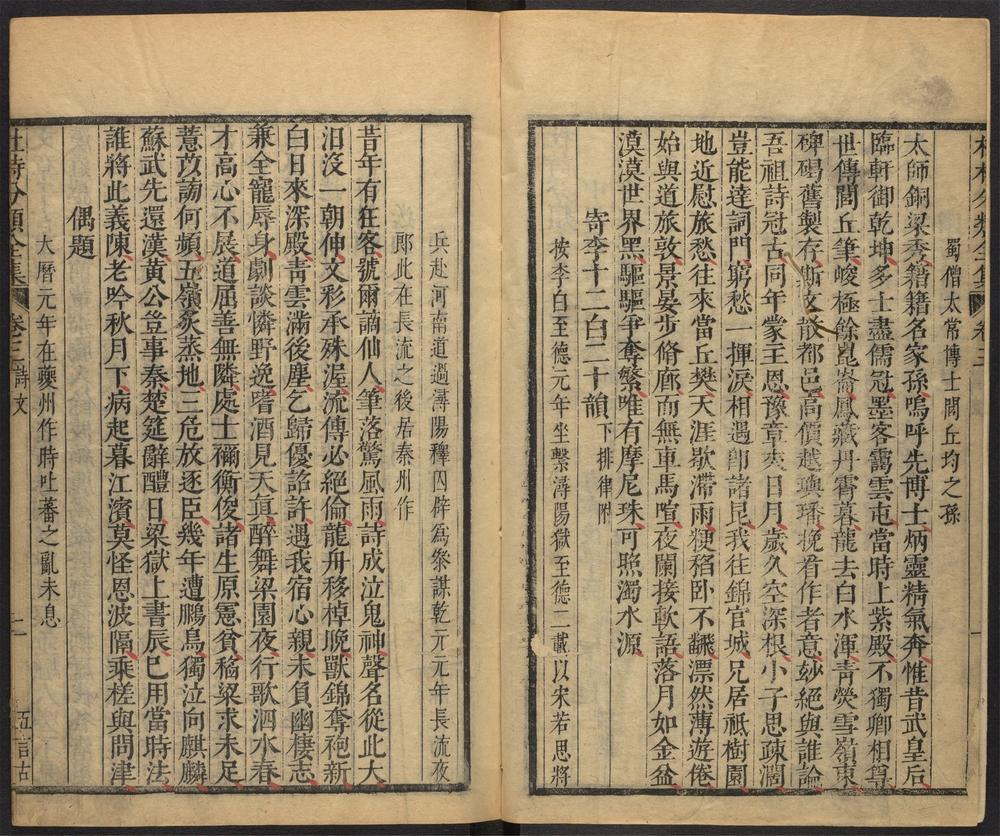 蜀僧太常博士閭丘均之孫
太師銅梁秀籍籍名家孫嗚呼先博士炳靈精氣奔惟昔武皇后
臨軒御乾坤多士盡儒冠墨客靄雲屯當時上紫殿不獨卿相尊
世傳閭丘筆峻極餘崑崙鳳藏丹霄暮龍去白水渾青熒雪嶺東
碑碣舊製存斯文散都邑高價越璵璠挽看作者意妙絕與誰論
吾祖詩冠古同年蒙主恩豫章夾日月歲久空深根小子思疎濶
豈能達詞門窮愁一揮淚相遇卽諸昆我往錦官城兄居祇樹園
地近慰旅愁往來當丘樊天涯歇滯雨粳稻卧不飜漂然薄遊倦
始與道旅敦景晏步脩廊而無車馬喧夜闌接軟語落月如金盆
漠漠世界黑驅驅爭奪繁唯有摩尼珠可照濁水源
寄李十二白二十韻下排律附
按李白至德元年坐繫潯陽獄至德二載以宋若思將
兵赴河南道過潯陽釋囚辟爲叅謀乾元元年長流夜
郎此在長流之後居秦州作
昔年有狂客號爾謫仙人筆落驚風雨詩成泣鬼神聲名從此大
汨沒一朝伸文彩承殊渥流傳必絕倫龍舟移棹晚獸錦奪袍新
白日來深殿靑雲滿後塵乞歸優詔許遇我宿心親未負幽棲志
兼全寵辱身劇談憐野逸嗜酒見天真醉舞梁園夜行歌泗水春
才高心不展道屈善無隣處士禰衡俊諸生原憲貧稻粱求未足
薏苡謗何頻五嶺炎蒸地三危放逐臣幾年遭鵩鳥獨泣向麒麟
蘇武先還漢黃公豈事秦楚筵辭醴日梁獄上書辰已用當時法
誰將此義陳老吟秋月下病起暮江濱莫怪恩波隔乘槎與問津
偶題
大曆元年在夔州作時吐蕃之亂未息
杜詩分類全集 卷三 詩文 二 五言古